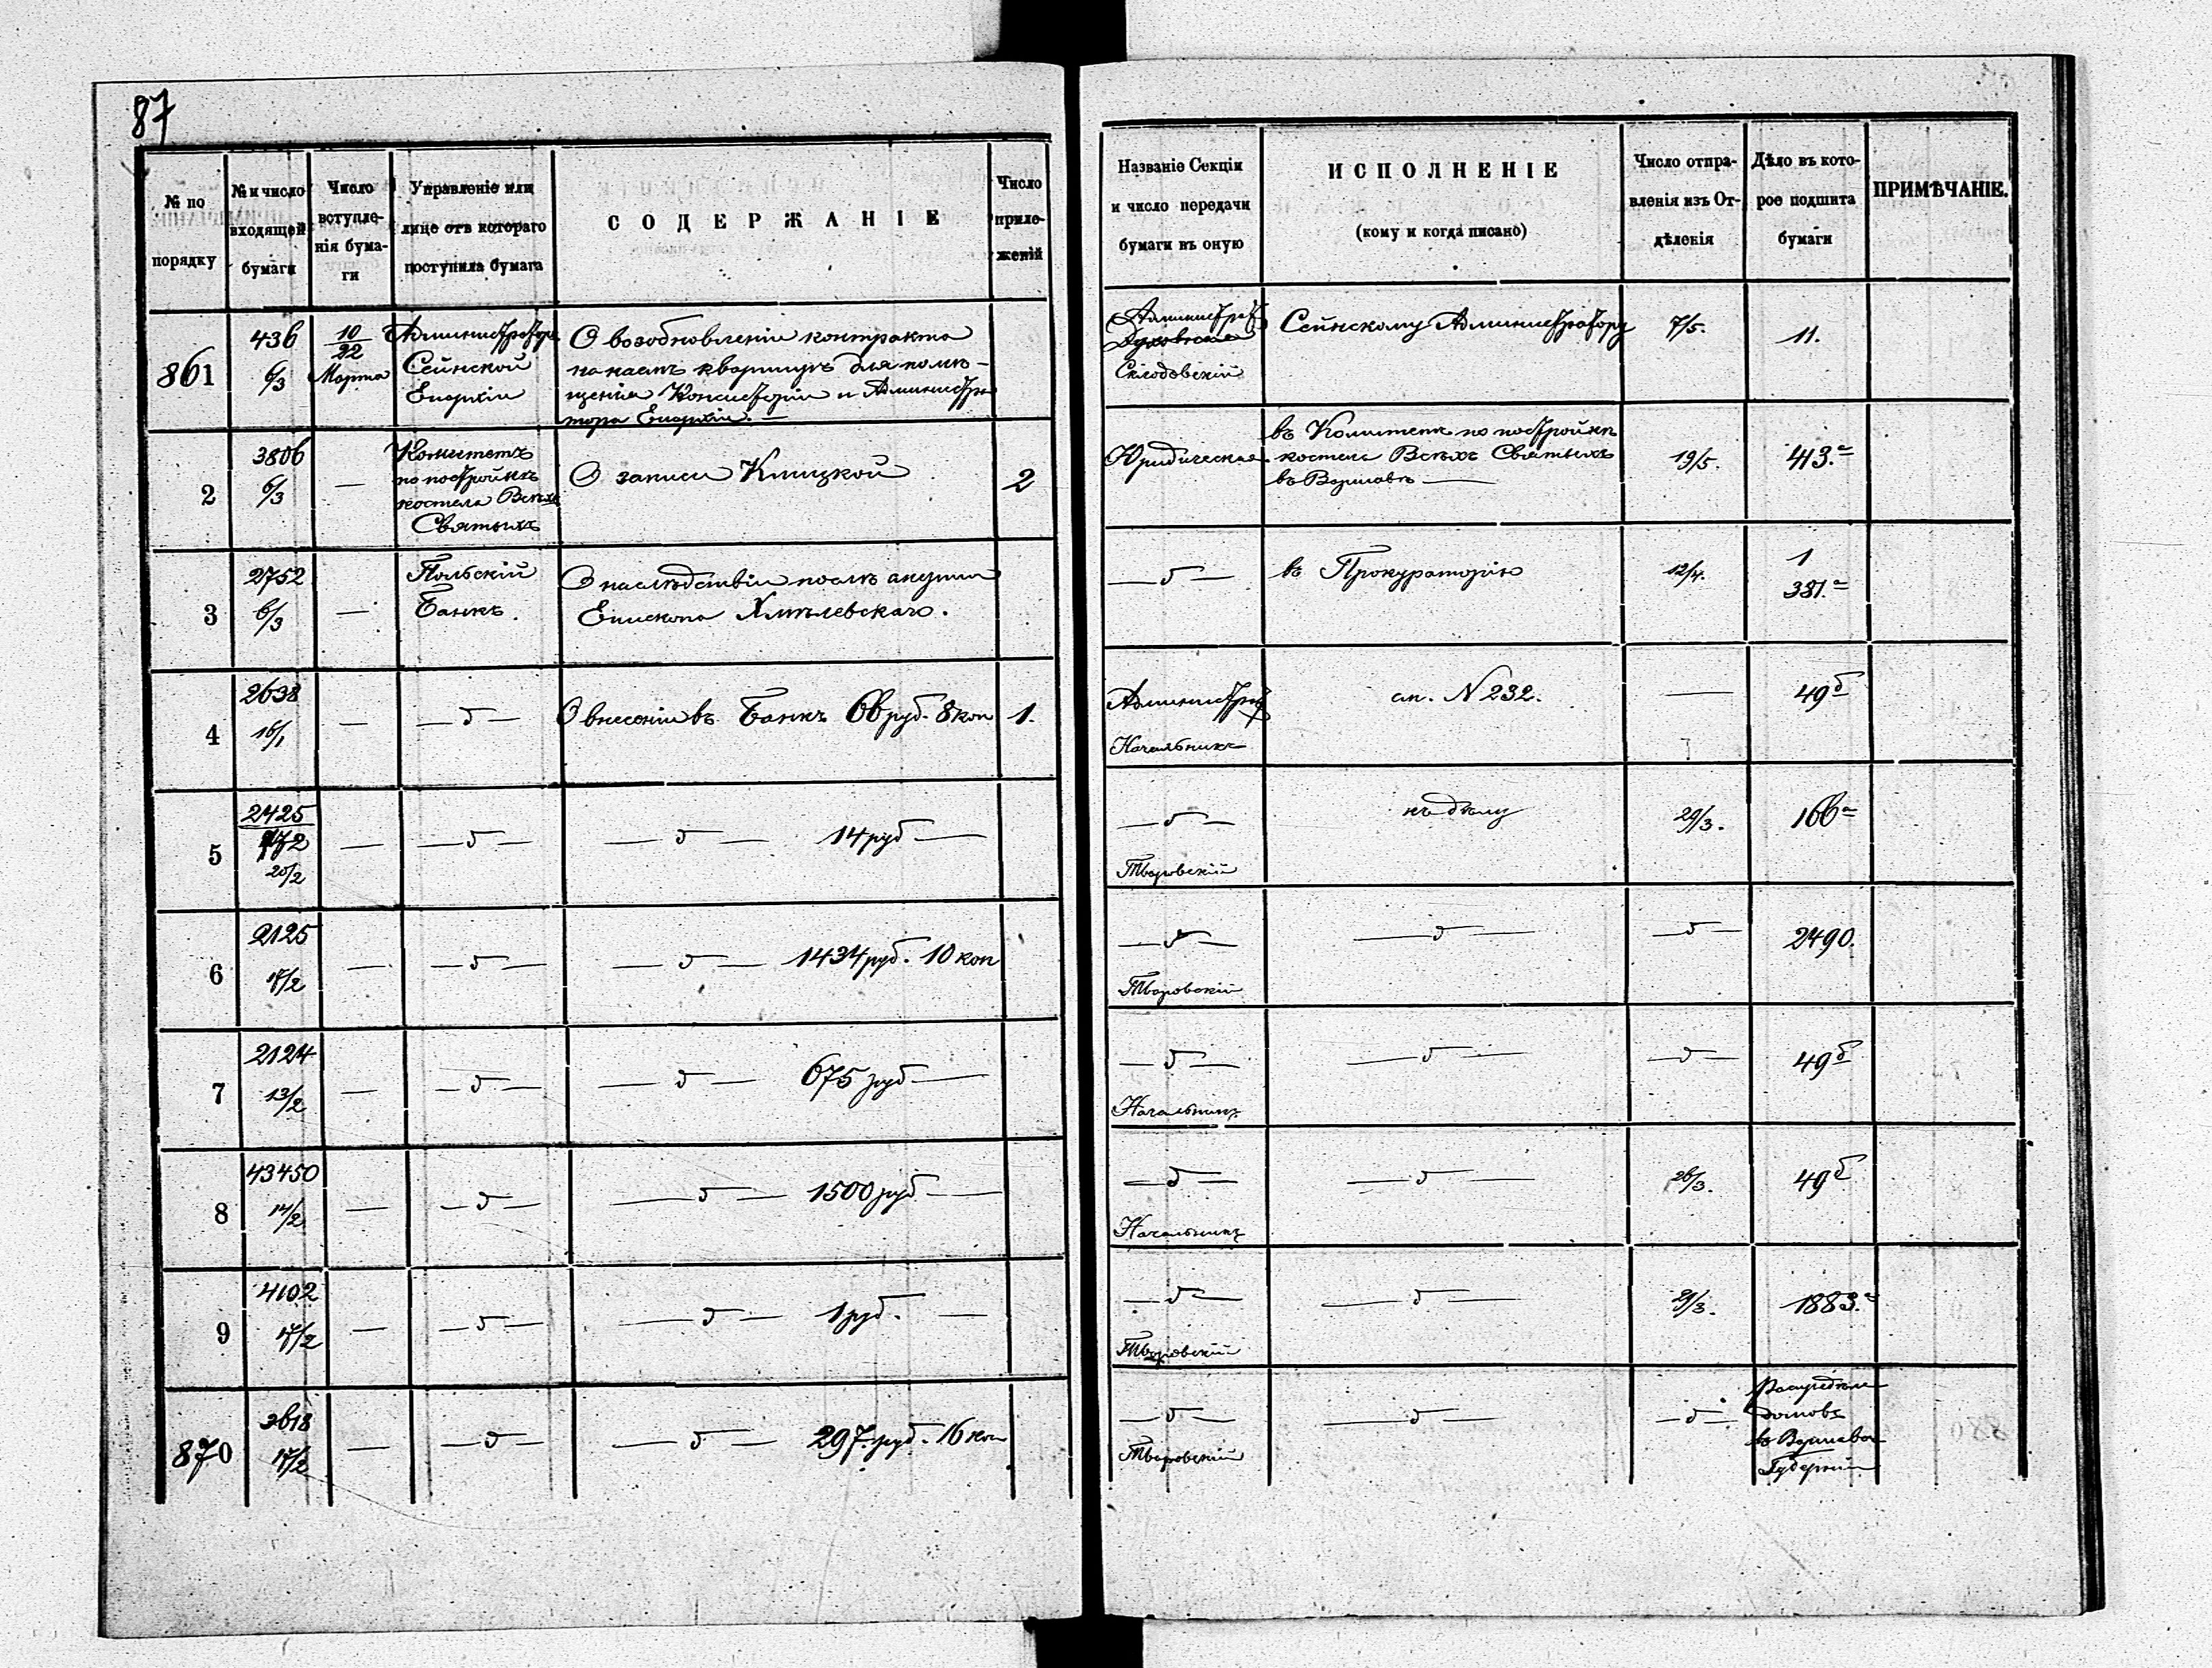 87
№ по порядку
№ и число входящей бумаги
Число вступленія бумаги
Управленіе или лице отъ котораго поступила бумага
СОДЕРЖАНІЕ
Число приложеній
Названіе Секціи и число передачи бумаги въ оную
ИСПОЛНЕНІЕ
(кому и когда писано)
Число отправленія изъ Отдѣленія
Дѣло въ которое подшита бумаги
ПРИМѢЧАНІЕ.
861
436
6/3
10/22
Марта
Администраторъ
Сейнской
Епархіи
О возобновленіи контракта
на наемъ квартиръ для помѣ-
щенія Консисторіи и Администра
тора Епархіи. —
Администрат
Духовная
Склодовскій
Сейнскому Администратору
7/5.
11.
2
3806
6/3
—
Комитетъ
по постройкѣ
костела Всѣхъ
Святыхъ
О записи Клицкой
2
Юридическая
въ Комитетъ по постройкѣ
костела Всѣхъ Святыхъ
въ Варшавѣ —
19/5.
413.а
3
2752
6/3
—
Польскій
Банкъ.
О наслѣдствіи послѣ
Епископа Хмѣлевскаго.
— д —
въ Прокураторію
12/4.
1
381.а
4
2638
16/1
—
— д —
О внесеніи въ Банкъ 66 руб. 8 коп
1.
Администрат
Начальникъ
см. N 232.
—
49б
5
2425
172
20/2
—
— д —
— д — 14 руб —
— д —
Творовскій
къ дѣлу
29/3.
166а
6
2125
17/2
—
— д —
— д — 1434 руб. 10 коп
— д —
Творовскій
— д —
— д —
2490.
7
2124
13/2
—
— д —
— д — 675 руб —
— д —
Начальникъ
— д —
— д —
49б
8
43450
14/2
—
— д —
— д — 1500 руб —
— д —
Начальникъ
— д —
26/3.
49б
9
4102
17/2
—
— д —
— д — 1 руб. —
— д —
Творовскій
— д —
29/3.
1883.а
870
3618
17/2
—
— д —
— д — 297 руб. 16 коп
— д —
Творовскій
— д —
— д —
домовъ
въ Варшавской
Губерніи